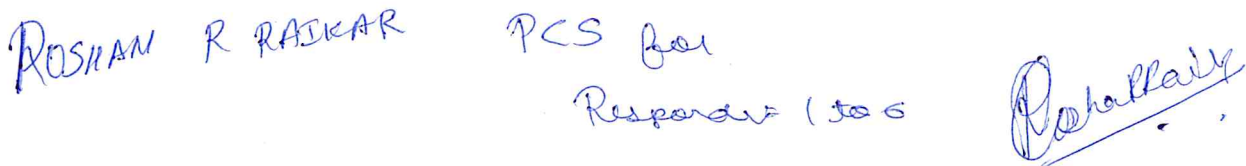 ROSHAN R RAIKAR PCS for
Respondent 1 to 6